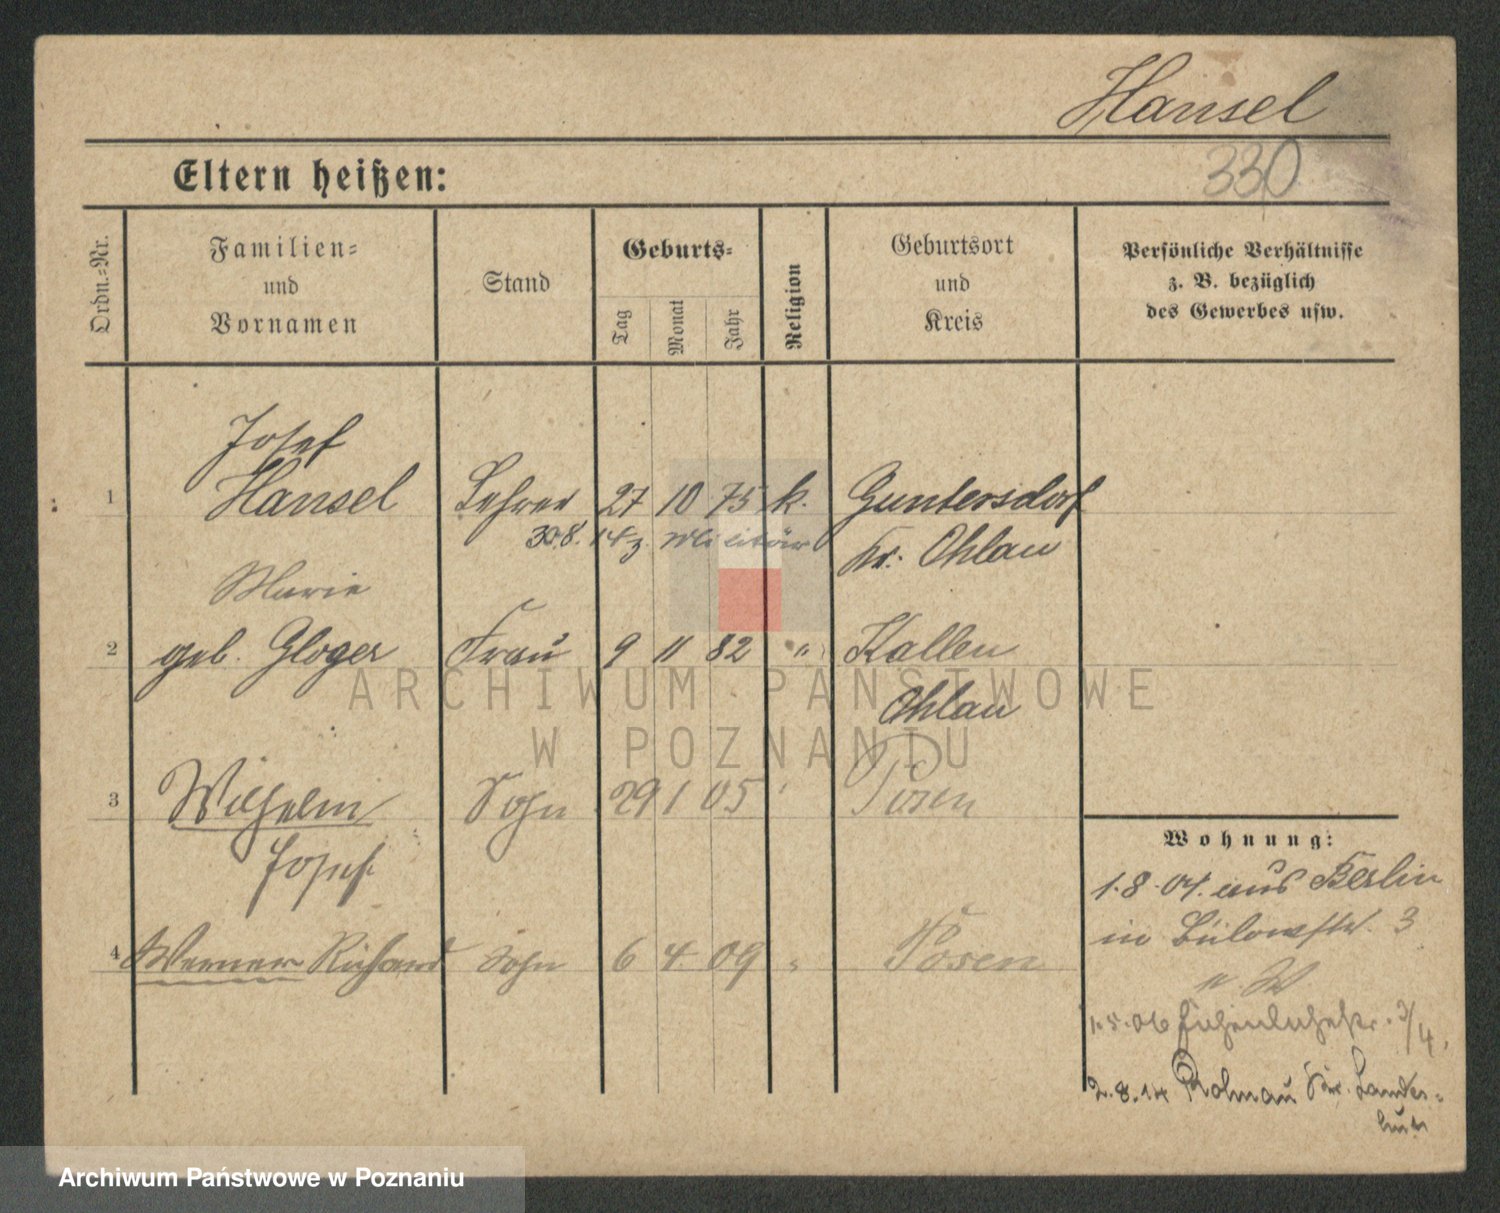 Hansel
330
Eltern heißen:
Ordn.-Nr.
Familien-
und
Vornamen
Stand
Geburts-
Tag
Monat
Jahr
Religion
Geburtsort
und
Kreis
Persönliche Verhältnisse
z. B. bezüglich
des Gewerbes usw.
Josef
1 Hansel Lehrer 27 10 75 k. Guntersdorf
30.8. 14 z. Militär Kr. Ohlau
Marie
2 geb. Gloger Frau 9 11 82 " Kallen
Ohlau
3 Wilhelm Sohn 29 1 05 ' Posen
Josef
4 Werner Richard Sohn 6 4 09 " Posen
Wohnung:
1.8.04. aus Berlin
in Bülowstr. 3
b. W
1.5.06 3/4.
2.8.14 Rohnau Kr. Landes-
hut
ARCHIWUM PAŃSTWOWE
W POZNANIU
Archiwum Państwowe w Poznaniu